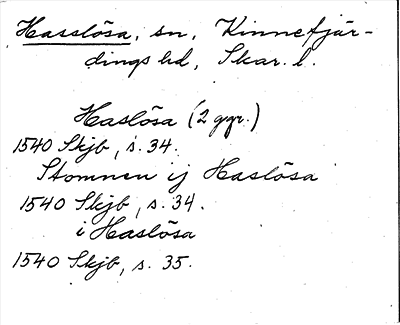 Hasslösa, sn, Kinnefjär-
dings hd, Skar. l.
Haslösa (2 ggr.)
1540 Skjb, s. 34.
Stomnen ij Haslösa
1540 Skjb, s. 34.
i Haslösa
1540 Skjb, s. 35.